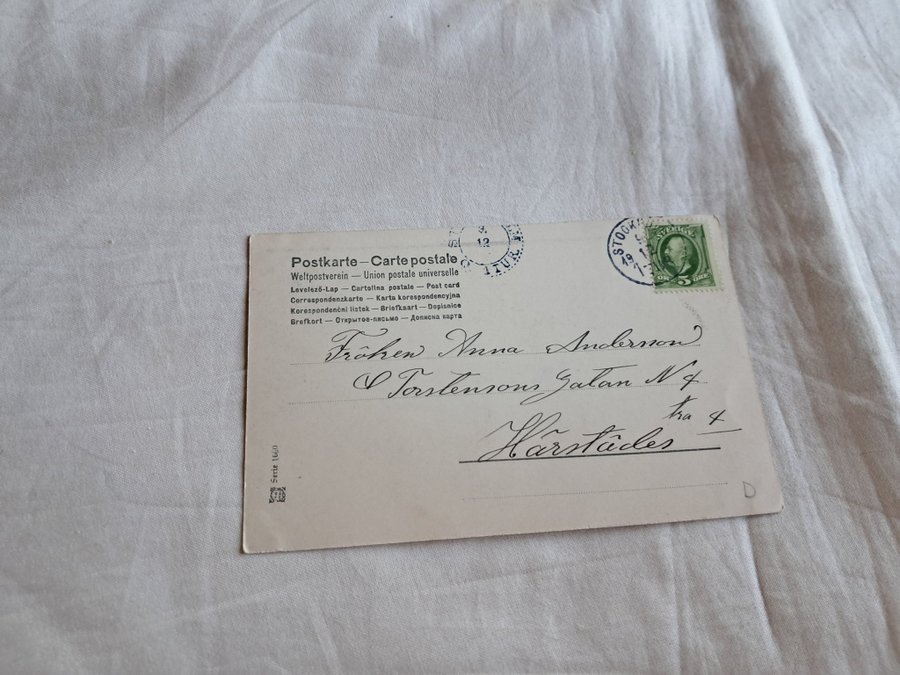 9.
12
1 TUR.
STOCKH
SVERIGE
5
ÖRE
Postkarte — Carte postale
Weltpostverein — Union postale universelle
Levelező-Lap — Cartolina postale — Post card
Correspondenzkarte — Karta korespondencyjna
Korespondenční listek — Briefkaart — Dopisnice
Brefkort — Открытое-письмо — Дописна карта
Fröken Anna Anderson
Torstensons Gatan N 4
tra 4
Härstädes
Serie 1660
D